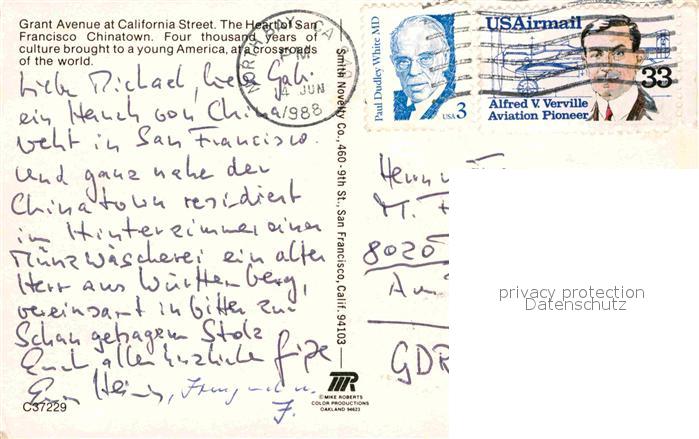 Grant Avenue at California Street. The Heart of San
Francisco Chinatown. Four thousand years of
culture brought to a young America, at a crossroads
of the world.
Liebe Michael, liebe Gabi
ein Hauch von China
weht in San Francisco.
Und ganz nahe der
Chinatown residiert
im Hinterzimmer einer
Münzwäscherei ein alter
Herr aus Württemberg,
vereinsamt in bitter zur
Schau getragem Stolz
Euch allen herzliche Grüße
Euer Heinz,
J.
C37229
Smith Novelty Co., 460 - 9th St., San Francisco, Calif. 94103
MR
© MIKE ROBERTS
COLOR PRODUCTIONS
OAKLAND 94623
CA
PM
4 JUN
1988
Paul Dudley White MD
USA 3
USAirmail
33
Alfred V. Verville
Aviation Pioneer
Herrn
M.
8020
GDR
privacy protection
Datenschutz